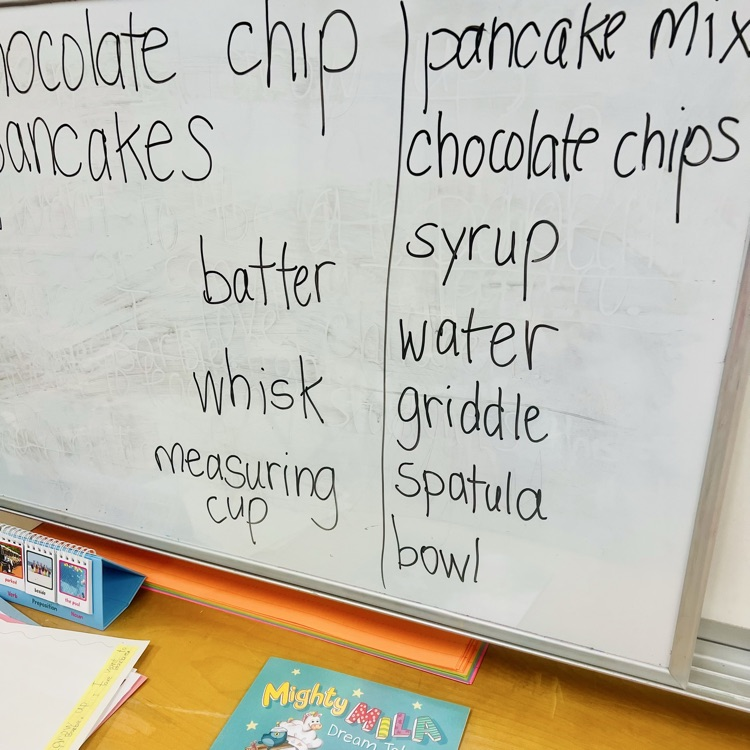 hocolate chip
ancakes
batter
whisk
measuring
cup
pancake mix
chocolate chips
syrup
water
griddle
spatula
bowl
Preposition
Mighty
MILA
Dream